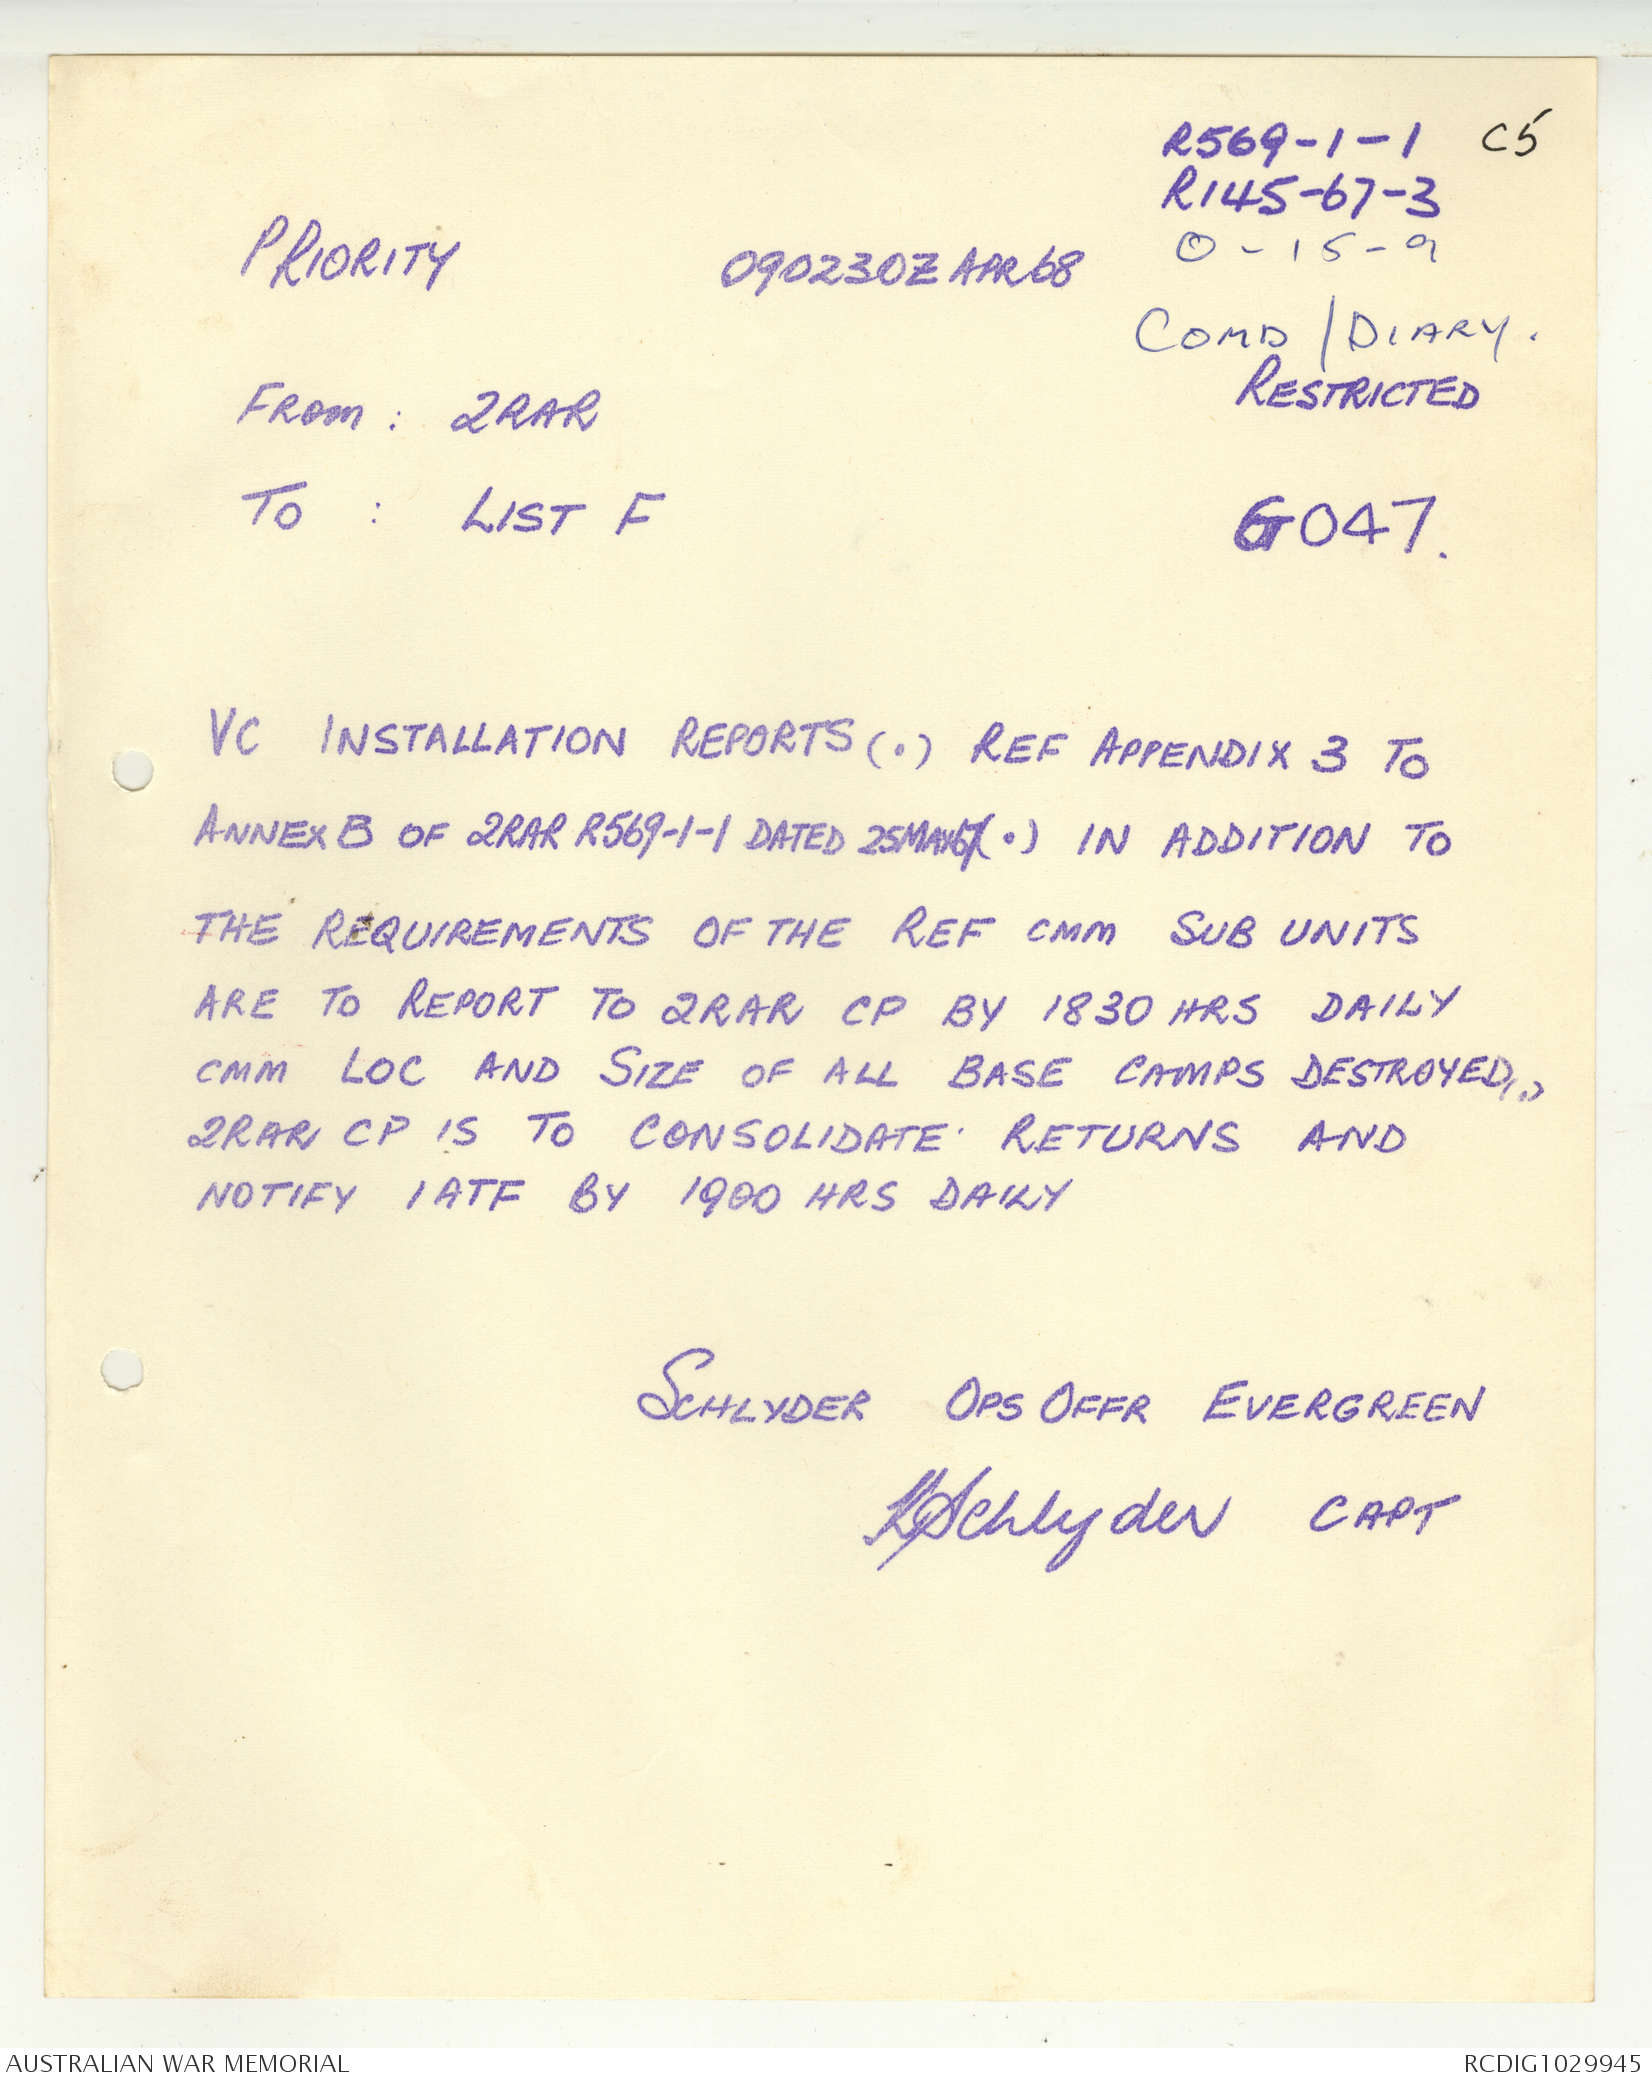 R569-1-1 C5
R145-67-3
0-15-9
PRIORITY 090230Z APR 68
COMD/DIARY.
RESTRICTED
FROM: 2RAR
TO : LIST F
G047.
VC INSTALLATION REPORTS (.) REF APPENDIX 3 TO
ANNEX B OF 2RAR R569-1-1 DATED 25MAY67(.) IN ADDITION TO
THE REQUIREMENTS OF THE REF CMM SUB UNITS
ARE TO REPORT TO 2RAR CP BY 1830 HRS DAILY
CMM LOC AND SIZE OF ALL BASE CAMPS DESTROYED(.)
2RAR CP IS TO CONSOLIDATE RETURNS AND
NOTIFY 1ATF BY 1900 HRS DAILY
SCHLYDER OPS OFFR EVERGREEN
Schlyder CAPT
AUSTRALIAN WAR MEMORIAL RCDIG1029945